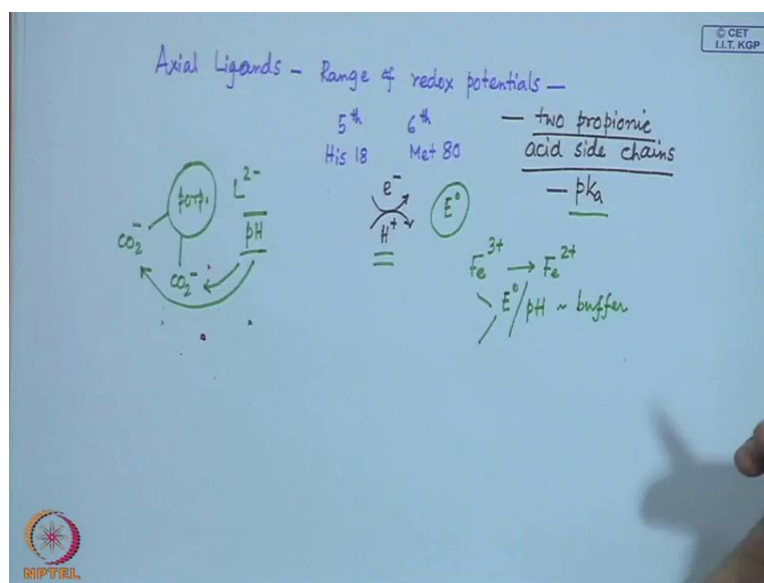 © CET
I.I.T. KGP
Axial Ligands – Range of redox potentials –
5th 6th
His 18 Met 80
– two propionic
acid side chains
– pka
porp.
L2-
pH
CO2-
CO2-
e-
H+
E°
Fe3+ → Fe2+
E° / pH ~ buffer
NPTEL